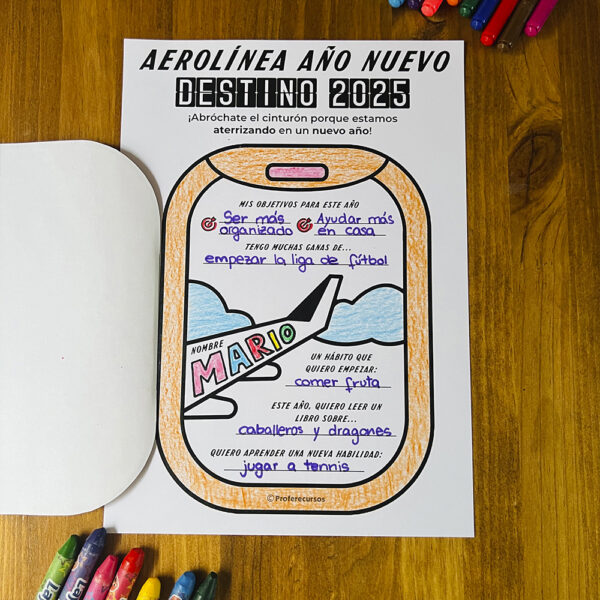 AEROLÍNEA AÑO NUEVO
DESTINO 2025
¡Abróchate el cinturón porque estamos
aterrizando en un nuevo año!
MIS OBJETIVOS PARA ESTE AÑO
Ser más
organizado
Ayudar más
en casa
TENGO MUCHAS GANAS DE...
empezar la liga de fútbol
NOMBRE
MARIO
UN HÁBITO QUE
QUIERO EMPEZAR:
comer fruta
ESTE AÑO, QUIERO LEER UN
LIBRO SOBRE...
caballeros y dragones
QUIERO APRENDER UNA NUEVA HABILIDAD:
jugar a tennis
©Proferecursos